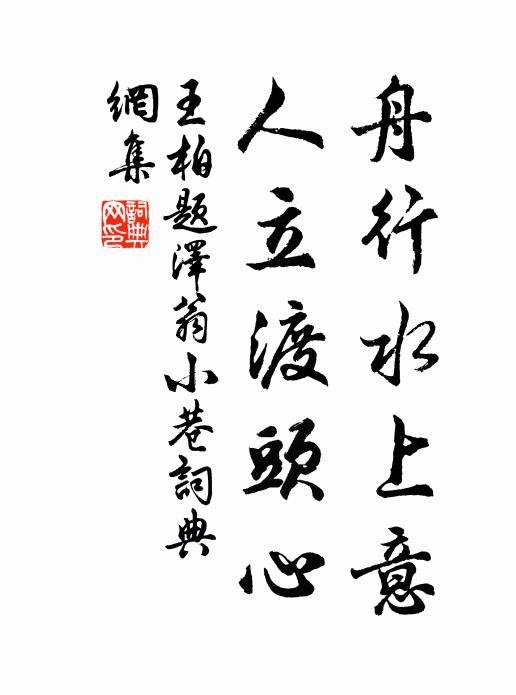 舟行水上意
人立渡頭心
王柏題澤翁小巷詞典
網集
詞典
网印